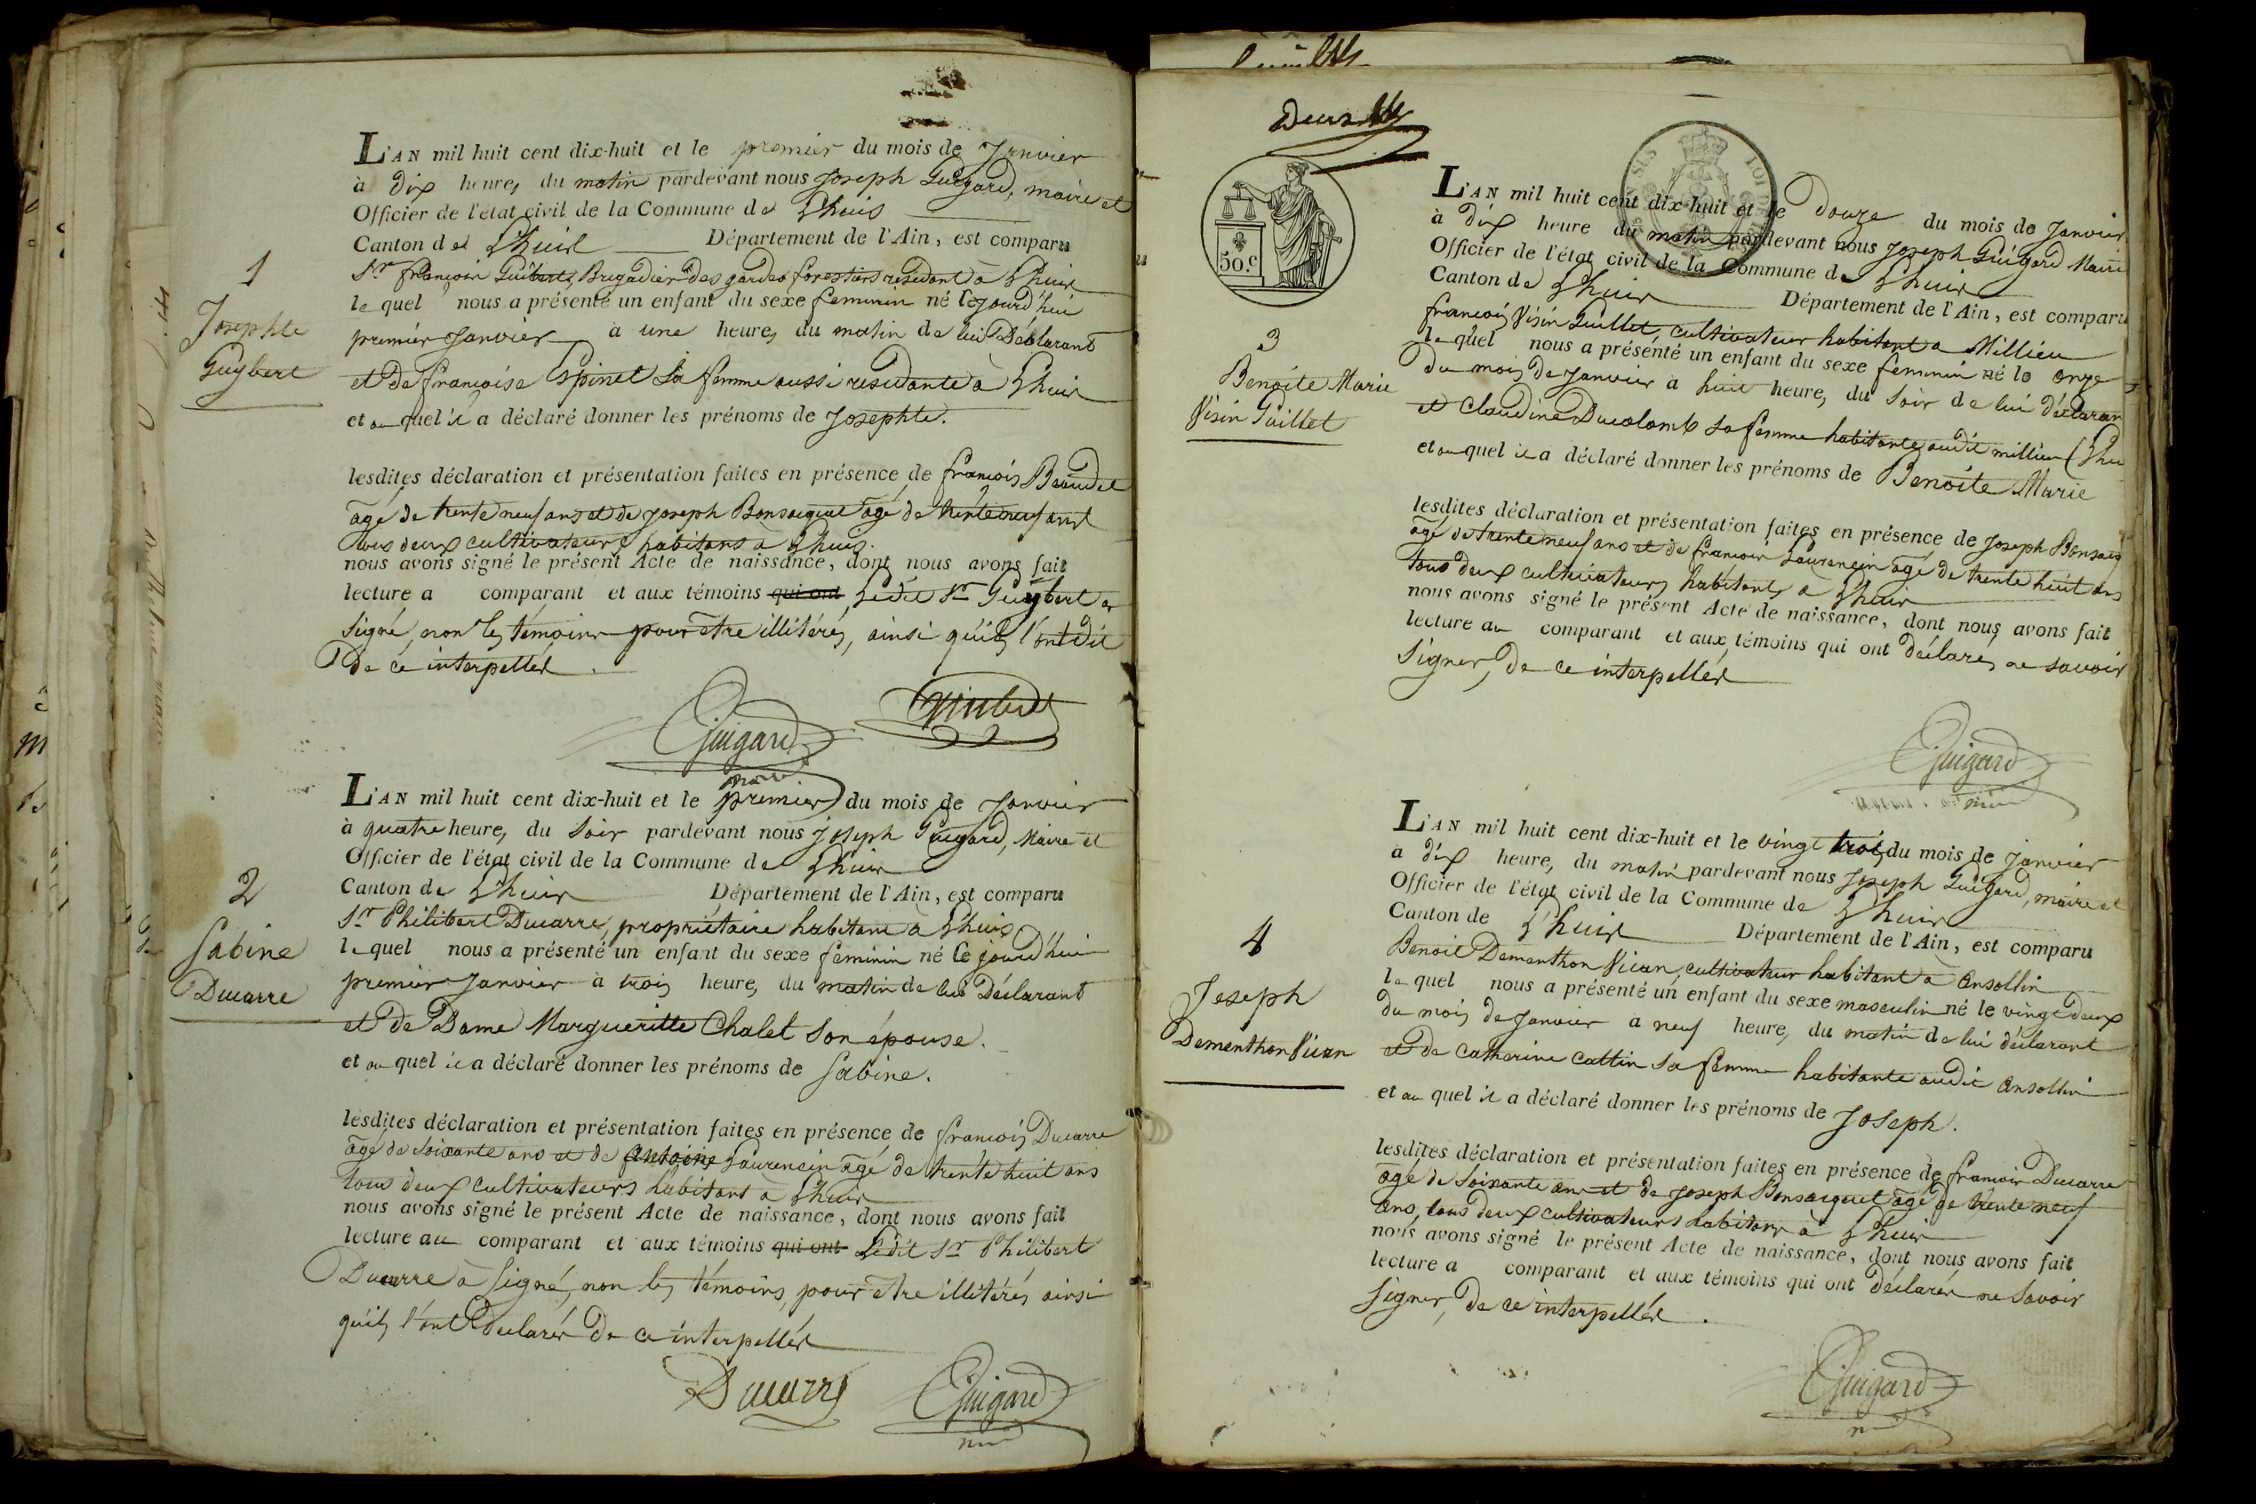 L'AN mil huit cent dix-huit et le premier du mois de Janvier
à dix heures du matin pardevant nous Joseph Guigard, maire et
Officier de l'état civil de la Commune de Lhuis
Canton de Lhuis Département de l'Ain, est comparu
1
Josephte
Guybert
Sr françois Guibert, Brigadier des gardes forestiers residant à Lhuis
lequel nous a présenté un enfant du sexe feminin né Cejourd'hui
premier Janvier à une heure, du matin de lui Déclarant
et de françoise Espinet Sa femme aussi residante à Lhuis
et auquel il a déclaré donner les prénoms de Josephte.
lesdites déclaration et présentation faites en présence de françois
agé de trente neuf ans et de Joseph Bonsacquet agé de trente neuf ans
tous deux cultivateurs habitans à Lhuis.
nous avons signé le présent Acte de naissance, dont nous avons fait
lecture a comparant et aux témoins qui ont Ledit Sr Guybert a
Signé, non les témoins pour être illitérés, ainsi qu'ils l'ont dit
De ce interpellés
Guigard
maire
L'AN mil huit cent dix-huit et le premier du mois de Janvier
à quatre heure, du Soir pardevant nous Joseph Guigard, Maire et
Officier de l'état civil de la Commune de Lhuis
Canton de Lhuis Département de l'Ain, est comparu
2
Sabine
Ducarre
Sr Philibert Ducarre, propriétaire habitant à Lhuis
lequel nous a présenté un enfant du sexe féminin né Ce jourd'hui
premier Janvier à trois heure, du matin de lui Déclarant
et de Dame Margueritte Chalet Son épouse.
et auquel il a déclaré donner les prénoms de Sabine.
lesdites déclaration et présentation faites en présence de françois Ducarre
agé de soixante ans et de Laurencin agé de trente huit ans
tous deux cultivateurs habitans à Lhuis
nous avons signé le présent Acte de naissance, dont nous avons fait
lecture au comparant et aux témoins qui ont Ledit Sr Philibert
Ducarre a Signé, non les témoins, pour être illitérés ainsi
qu'ils l'ont declarés De ce interpellés
Ducarre Guigard
50.c
L'AN mil huit cent dix-huit et le Douze du mois de Janvier
à dix heure du matin pardevant nous Joseph Guigard Maire
Officier de l'état civil de la Commune de Lhuis
Canton de Lhuis Département de l'Ain, est comparu
3
Benoite Marie
Visin Guillet
françois Visin Guillet, cultivateur habitant a Millieu
lequel nous a présenté un enfant du sexe feminin né le onze
Du mois de Janvier a huit heure, du Soir de lui déclaran
et Claudine Ducolomb sa femme habitante audit millieu (Lhu
et auquel il a déclaré donner les prénoms de Benoite Marie
lesdites déclaration et présentation faites en présence de Joseph Bonsacq
agé de trente neuf ans et de françois Laurencin agé de trente huit ans
tous deux cultivateurs habitants à Lhuis
nous avons signé le présent Acte de naissance, dont nous avons fait
lecture au comparant et aux témoins qui ont déclarés ne savoir
Signer, De ce interpellés
Guigard
L'AN mil huit cent dix-huit et le vingt trois du mois de Janvier
à dix heure, du matin pardevant nous Joseph Guigard, maire et
Officier de l'état civil de la Commune de Lhuis
Canton de Lhuis Département de l'Ain, est comparu
4
Joseph
Dementhon Vican
Benoit Dementhon Vican, cultivateur habitant à Ansollin
lequel nous a présenté un enfant du sexe masculin né le vingt deux
du mois de Janvier a neuf heure, du matin de lui déclarant
et de Catherine Cattin sa femme habitante audit Ansollin
et auquel il a déclaré donner les prénoms de Joseph.
lesdites déclaration et présentation faites en présence de françois Ducarre
agé de Soixante ans et de Joseph Bonsacquet agé de trente neuf
ans, tous deux cultivateurs habitans à Lhuis
nous avons signé le présent Acte de naissance, dont nous avons fait
lecture a comparant et aux témoins qui ont Déclarés ne Savoir
Signer, De ce interpellés.
Guigard